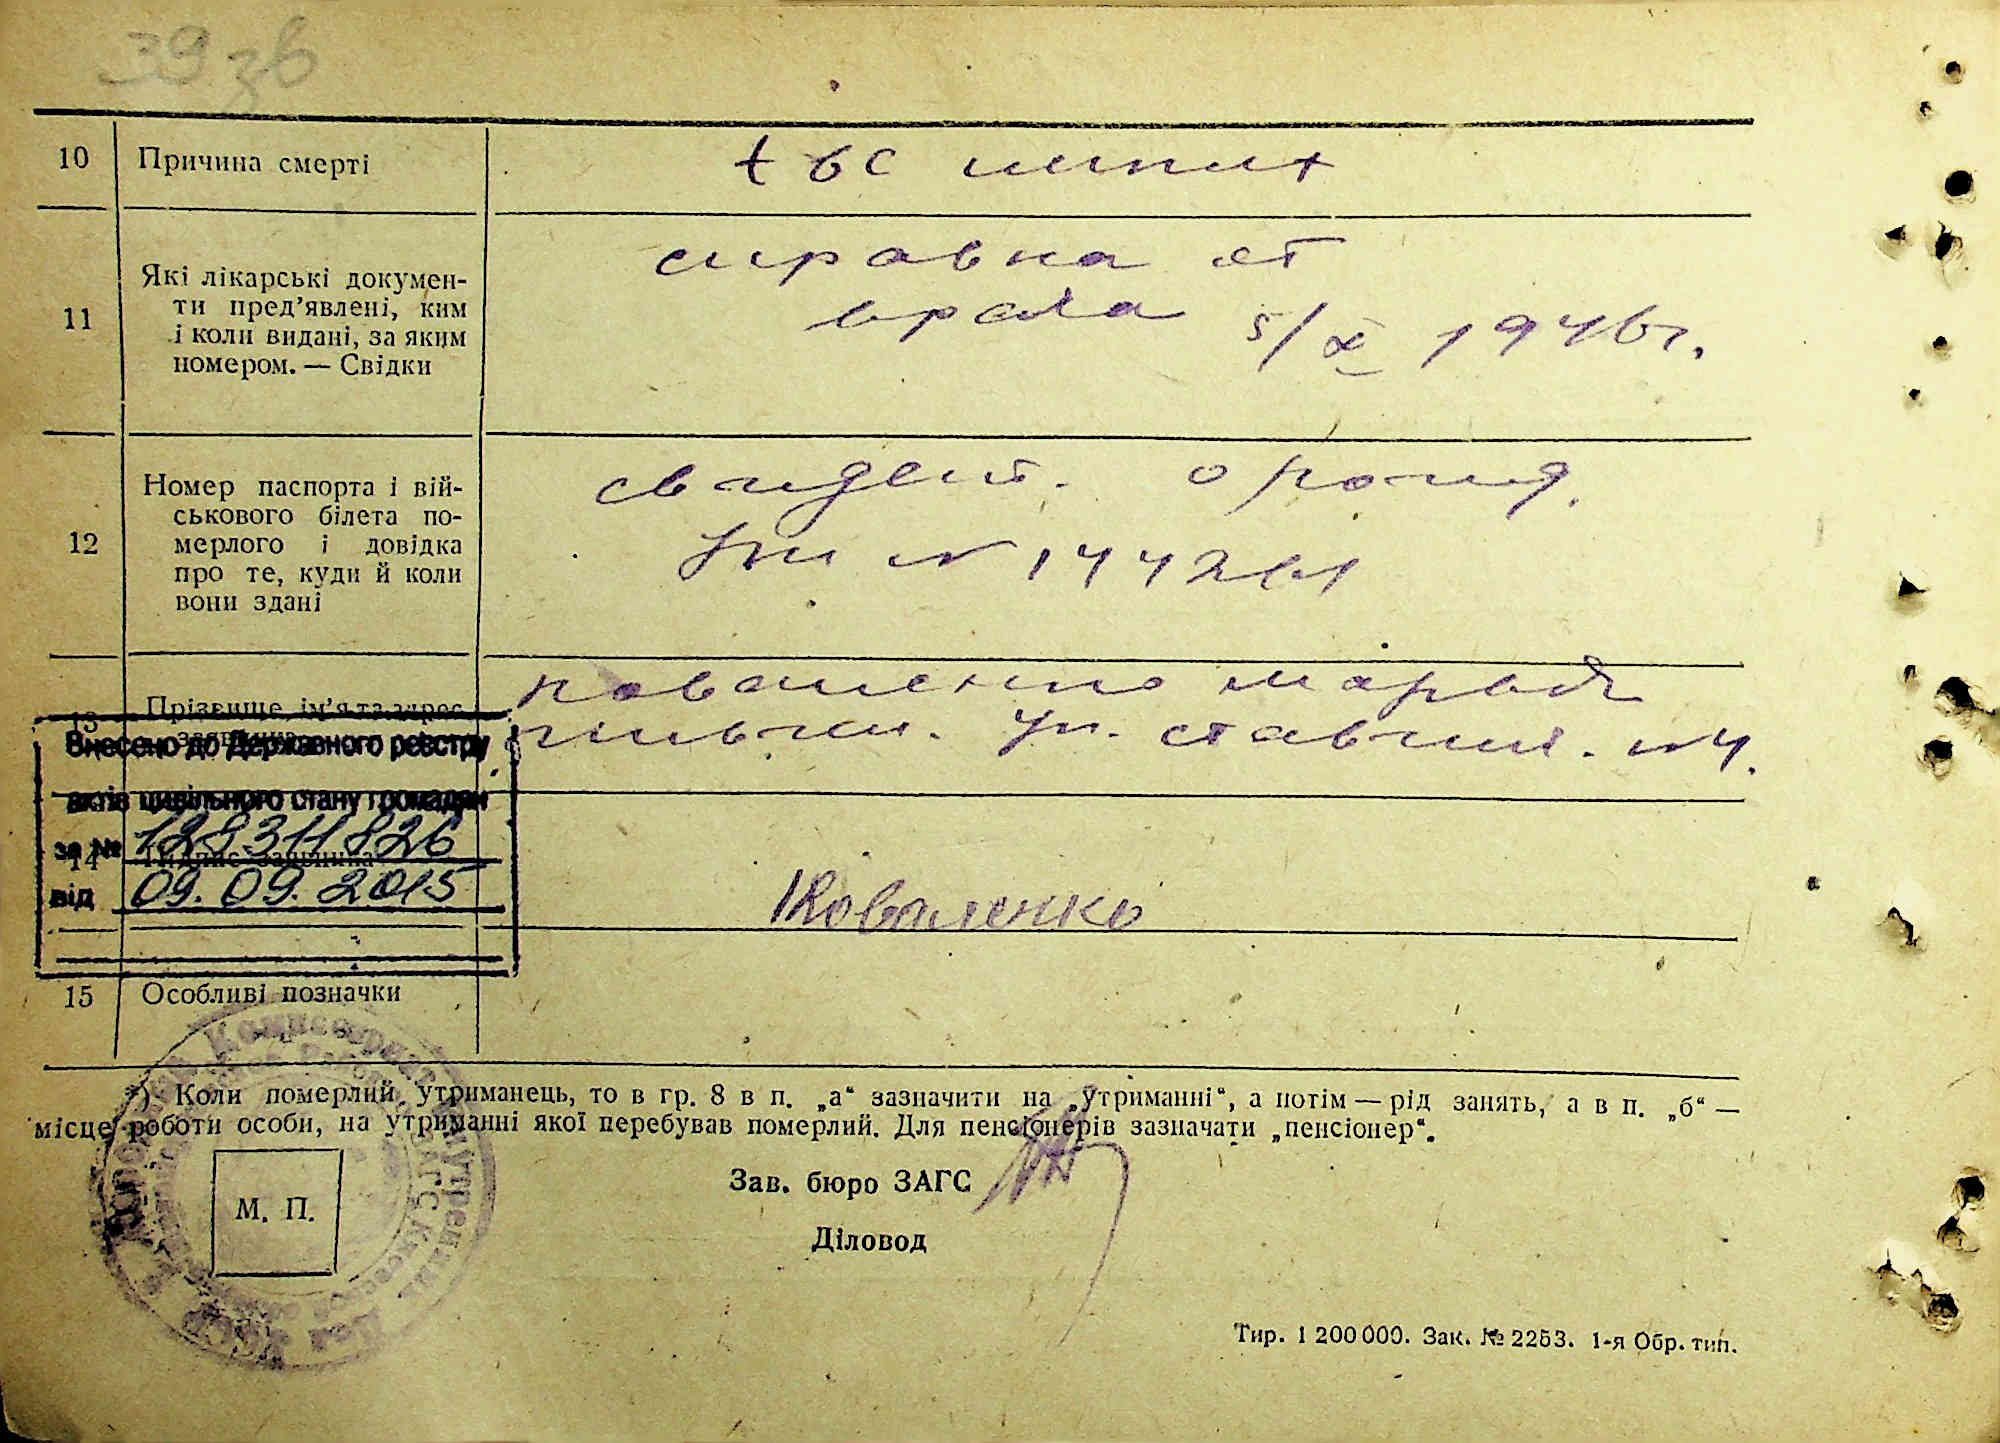 39 зв
10 Причина смерти tbc менинг
11 Які лікарські докумен-
ти пред'явлені, ким
і коли видані, за яким
номером. — Свідки
справка от
врача 5/X 1946г.
12 Номер паспорта і вій-
ськового білета по-
мерлого і довідка
про те, куди й коли
вони здані
свидет. о рожд.
№ 144261
13 Прізвище, ім'я та адрес
Коваленко Марья
ул. №4.
Внесено до Державного реєстру
актів цивільного стану громадян
за № 128311826
від 09.09.2015
14 Підпис заявника
Коваленко
15 Особливі позначки
*) Коли померлий утриманець, то в гр. 8 в п. „а“ зазначити на „утриманні“, а потім — рід занять, а в п. „б“ —
місце роботи особи, на утриманні якої перебував померлий. Для пенсіонерів зазначати „пенсіонер“.
М. П.
Зав. бюро ЗАГС
Діловод
Тир. 1 200 000. Зак. № 2253. 1-я Обр. тип.